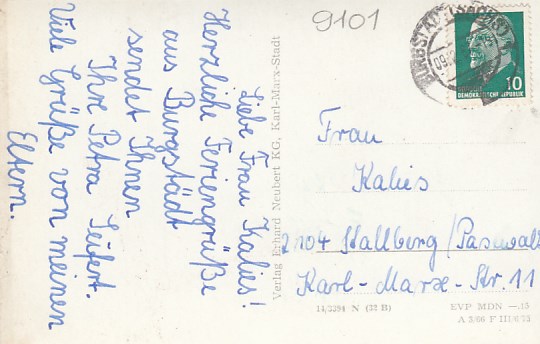 9101
Liebe Frau Kalies!
Herzliche Feriengrüße
aus Burgstädt
sendet Ihnen
Ihre Petra Seifert.
Viele Grüße von meinen
Eltern.
Verlag Erhard Neubert KG, Karl-Marx-Stadt
10
DEMOKRATISCHE REPUBLIK
Frau
Kalies
2104 Stallberg/Pasewalk
Karl-Marx-Str. 11
14/3394 N (32 B)
EVP MDN —.15